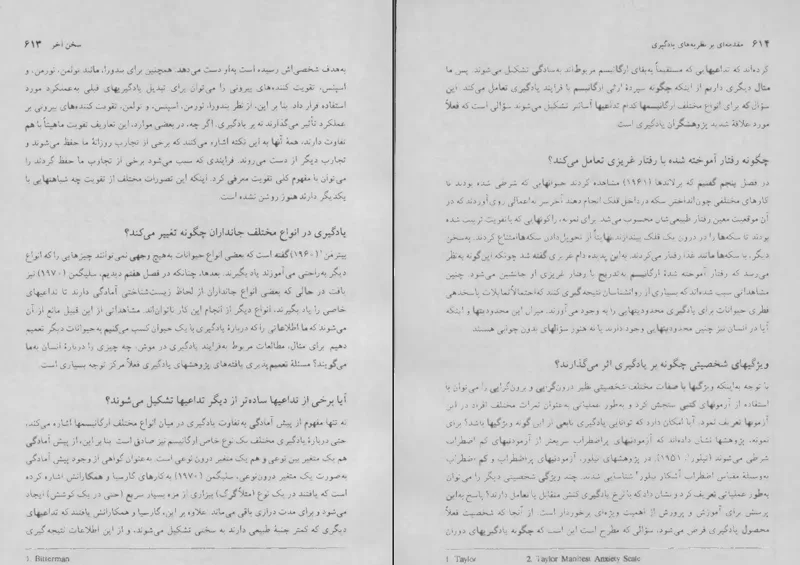 سخن آخر ۶۱۳
به‌هدف شخصی‌اش رسیده است به‌او دست می‌دهد. همچنین برای بندورا، مانند تولمن، تورمن، و
اسپنس، تقویت کننده‌های بیرونی را می‌توان برای تبدیل یادگیریهای قبلی به‌عملکرد مورد
استفاده قرار داد. بنا بر این، از نظر بندورا، تورمن، اسپنس، و تولمن، تقویت کننده‌های بیرونی بر
عملکرد تأثیر می‌گذارند نه بر یادگیری. اگر چه، در بعضی موارد، این تعاریف تقویت ماهیتاً با هم
تفاوت دارند، همۀ آنها به این نکته اشاره می‌کنند که برخی از تجارب روزانۀ ما حفظ می‌شوند و
تجارب دیگر از دست می‌روند. فرایندی که سبب می‌شود برخی از تجارب ما حفظ گردند را
می‌توان با مفهوم کلی تقویت معرفی کرد. اینکه این تصورات مختلف از تقویت چه شباهتهایی با
یکدیگر دارند هنوز روشن نشده است.
یادگیری در انواع مختلف جانداران چگونه تغییر می‌کند؟
بیترمن۱ (۱۹۶۰) گفته است که بعضی انواع حیوانات به‌هیچ وجهی نمی‌توانند چیزهایی را که انواع
دیگر به‌راحتی می‌آموزند یاد بگیرند. بعدها، چنانکه در فصل هفتم دیدیم، سلیگمن (۱۹۷۰) نیز
یافت در حالی که بعضی انواع جانداران از لحاظ زیست‌شناختی آمادگی دارند تا تداعیهای
خاصی را یاد بگیرند، انواع دیگر از انجام این کار ناتوان‌اند. مشاهداتی از این قبیل مانع از آن
می‌شوند که ما اطلاعاتی را که دربارۀ یادگیری با یک حیوان کسب می‌کنیم به حیوانات دیگر تعمیم
دهیم. برای مثال، مطالعات مربوط به‌فرایند یادگیری در موش، چه چیزی را دربارۀ انسان به‌ما
می‌گویند؟ مسئلۀ تعمیم‌پذیری یافته‌های پژوهشهای یادگیری فعلاً مرکز توجه بسیاری است.
آیا برخی از تداعیها ساده‌تر از دیگر تداعیها تشکیل می‌شوند؟
نه تنها مفهوم از پیش آمادگی به‌تفاوت یادگیری در میان انواع مختلف ارگانیسمها اشاره می‌کند،
حتی دربارۀ یادگیری مختلف یک نوع خاص ارگانیسم نیز صادق است. بنا بر این، از پیش آمادگی
هم یک متغیر بین نوعی و هم یک متغیر درون‌نوعی است. به‌عنوان گواهی از وجود پیش آمادگی
به‌صورت یک متغیر درون‌نوعی، سلیگمن (۱۹۷۰) به‌کارهای گارسیا و همکارانش اشاره کرده
است که یافتند در یک نوع (مثلاً گرگ) بیزاری از مزه بسیار سریع (حتی در یک کوشش) ایجاد
می‌شود و برای مدت درازی باقی می‌ماند. اعلاوه بر این، گارسیا و همکارانش یافتند که تداعیهای
دیگری که کمتر جنبۀ طبیعی دارند به سختی تشکیل می‌شوند، و از این اطلاعات نتیجه گیری
1. Bitterman
۶۱۴ مقدمه‌ای بر نظریه‌های یادگیری
کرده‌اند که تداعیهایی که مستقیماً به‌بقای ارگانیسم مربوط‌اند به‌سادگی تشکیل می‌شوند. پس ما
مثال دیگری داریم از اینکه چگونه سپردۀ ارثی ارگانیسم با فرایند یادگیری تعامل می‌کند. این
سؤال که برای انواع مختلف ارگانیسمها کدام تداعیها آسانتر تشکیل می‌شوند سؤالی است که فعلاً
مورد علاقۀ شدید پژوهشگران یادگیری است.
چگونه رفتار آموخته شده با رفتار غریزی تعامل می‌کند؟
در فصل پنجم گفتیم که برلاندها (۱۹۶۱) مشاهده کردند حیوانهایی که شرطی شده بودند تا
کارهای مختلفی چون‌انداختن سکه در داخل قلک انجام دهند آخر سر به‌اعمالی روی‌آوردند که در
آن موقعیت معین رفتار طبیعی‌شان محسوب می‌شد. برای نمونه، راکونهایی که با تقویت تربیت شده
بودند تا سکه‌ها را در درون یک قلک بیندازند نهایتاً از تحویل‌دادن سکه‌ها امتناع کردند. به‌سخن
دیگر، با سکه‌ها مانند غذا رفتار می‌کردند. به‌این پدیده دام غریزی گفته شد چونکه این‌گونه به‌نظر
می‌رسد که رفتار آموخته شدۀ ارگانیسم به‌تدریج با رفتار غریزی او جانشین می‌شود. چنین
مشاهداتی سبب شده‌اند که بسیاری از روانشناسان نتیجه گیری کنند که احتمالاً تمایلات پاسخدهی
فطری حیوانات برای یادگیری محدودیتهایی را به وجود می‌آورند. میزان این محدودیتها و اینکه
آیا در انسان نیز چنین محدودیتهایی وجود دارند یا نه هنوز سؤالهای بدون جوابی هستند.
ویژگیهای شخصیتی چگونه بر یادگیری اثر می‌گذارند؟
با توجه به‌اینکه ویژگیها یا صفات مختلف شخصیتی نظیر درون‌گرایی و برون‌گرایی را می‌توان با
استفاده از آزمونهای کتبی سنجش کرد و به‌طور عملیاتی به‌عنوان نمرات مختلف افراد در این
آزمونها تعریف نمود، آیا امکان دارد که توانایی یادگیری تابعی از این گونه ویژگیها باشد؟ برای
نمونه، پژوهشها نشان داده‌اند که آزمودنیهای پراضطراب سریعتر از آزمودنیهای کم اضطراب
شرطی می‌شوند (تیلور۱، ۱۹۵۱). در پژوهشهای تیلور، آزمودنیهای پر‌اضطراب و کم اضطراب
به‌وسیلۀ مقیاس اضطراب آشکار تیلور۲ شناسایی شدند. چند ویژگی شخصیتی دیگر را می‌توان
به‌طور عملیاتی تعریف کرد و نشان داد که با نرخ یادگیری کنش متقابل یا تعامل دارند؟ پاسخ به‌این
پرسش برای آموزش و پرورش از اهمیت ویژه‌ای برخوردار است. از آنجا که شخصیت فعلاً
محصول یادگیری فرض می‌شود، سؤالی که مطرح است این است که چگونه یادگیریهای دوران
1. Taylor 2. Taylor Manifest Anxiety Scale